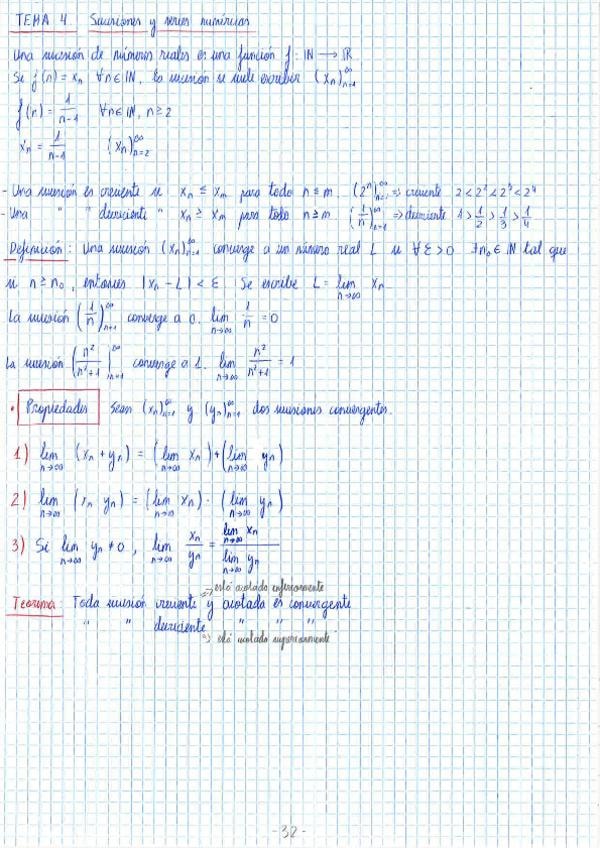 TEMA 4. Sucesiones y series numéricas
Una sucesión de números reales es una función f: ℕ → ℝ
Si f(n) = xₙ ∀n∈ℕ, la sucesión se suele escribir (xₙ)ₙ₌₁^∞
f(n) = 1/(n-1) ∀n∈ℕ, n≥2
xₙ = 1/(n-1) (xₙ)ₙ₌₂^∞
- Una sucesión es creciente si xₙ ≤ xₘ para todo n ≤ m. (2ⁿ)ₙ₌₁^∞ => creciente 2 < 2² < 2³ < 2⁴
- Una " " decreciente " xₙ ≥ xₘ para todo n ≥ m (1/n)ₙ₌₁^∞ => decreciente 1 > 1/2 > 1/3 > 1/4
Definición: Una sucesión (xₙ)ₙ₌₁^∞ converge a un número real L si ∀ε>0 ∃n₀∈ℕ tal que
si n ≥ n₀, entonces |xₙ - L| < ε. Se escribe L = lim n→∞ xₙ
La sucesión (1/n)ₙ₌₁^∞ converge a 0. lim n→∞ 1/n = 0
La sucesión (n²/(n²+1))ₙ₌₁^∞ converge a 1. lim n→∞ n²/(n²+1) = 1
• Propiedades Sean (xₙ)ₙ₌₁^∞ y (yₙ)ₙ₌₁^∞ dos sucesiones convergentes.
1) lim n→∞ (xₙ + yₙ) = (lim n→∞ xₙ) + (lim n→∞ yₙ)
2) lim n→∞ (xₙ yₙ) = (lim n→∞ xₙ) · (lim n→∞ yₙ)
3) Si lim n→∞ yₙ ≠ 0, lim n→∞ xₙ/yₙ = lim n→∞ xₙ / lim n→∞ yₙ
=> está acotada inferiormente
Teorema: Toda sucesión creciente y acotada es convergente
" " decreciente " " " .
=> está acotada superiormente
- 32 -